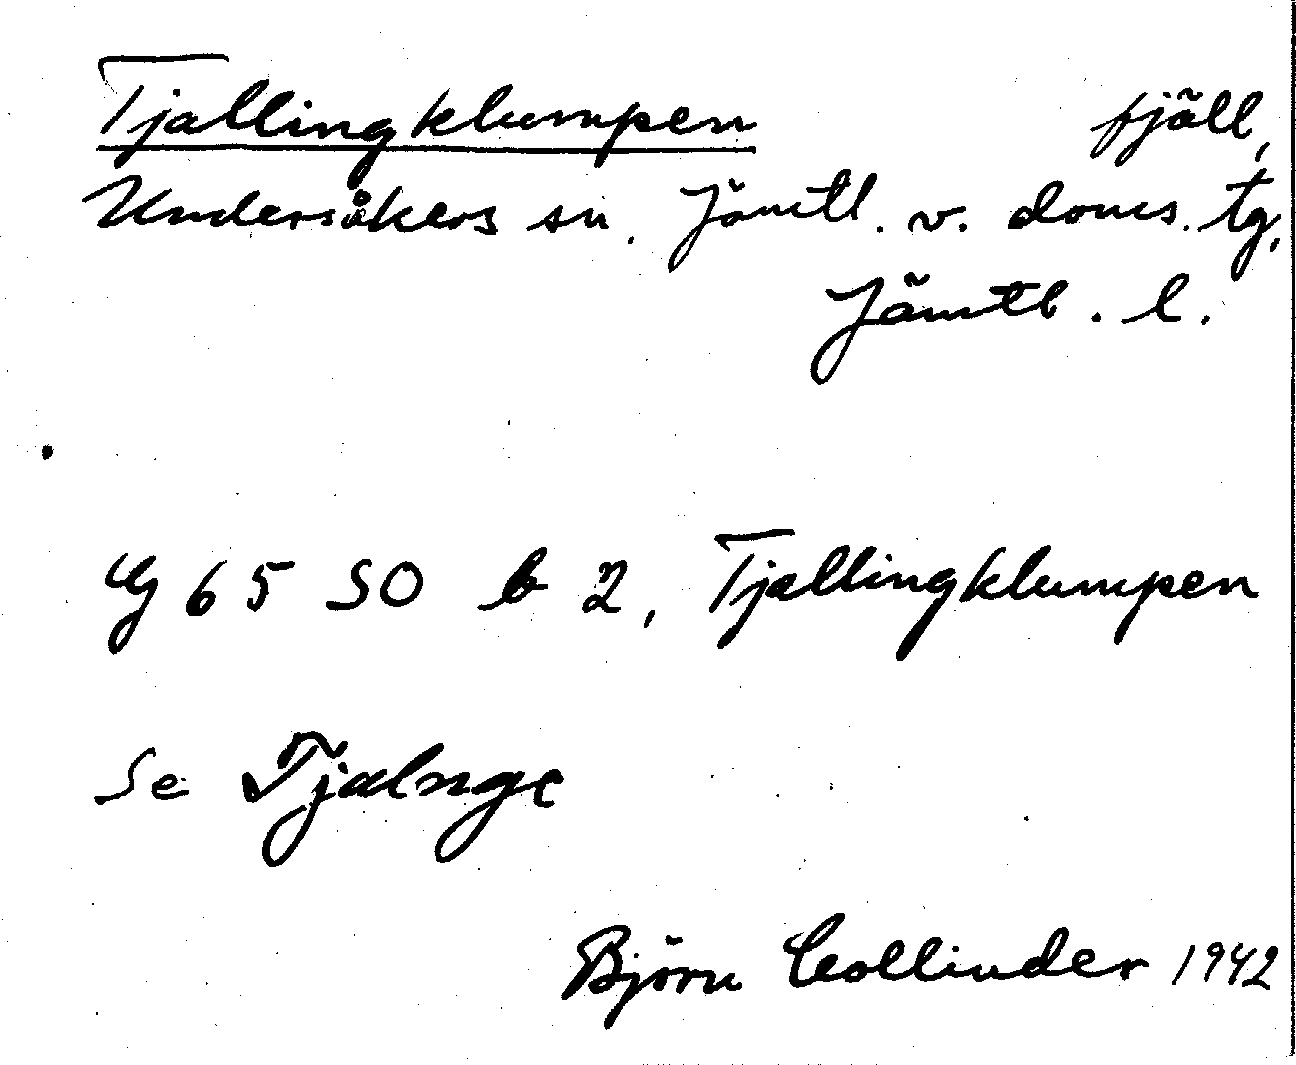 Tjallingklumpen fjäll,
Undersåkers sn. Jämtl. v. doms. tg,
Jämtl. l.
Cg 65 SO b 2, Tjallingklumpen
Se Tjalnge
Björn Collinder 1942